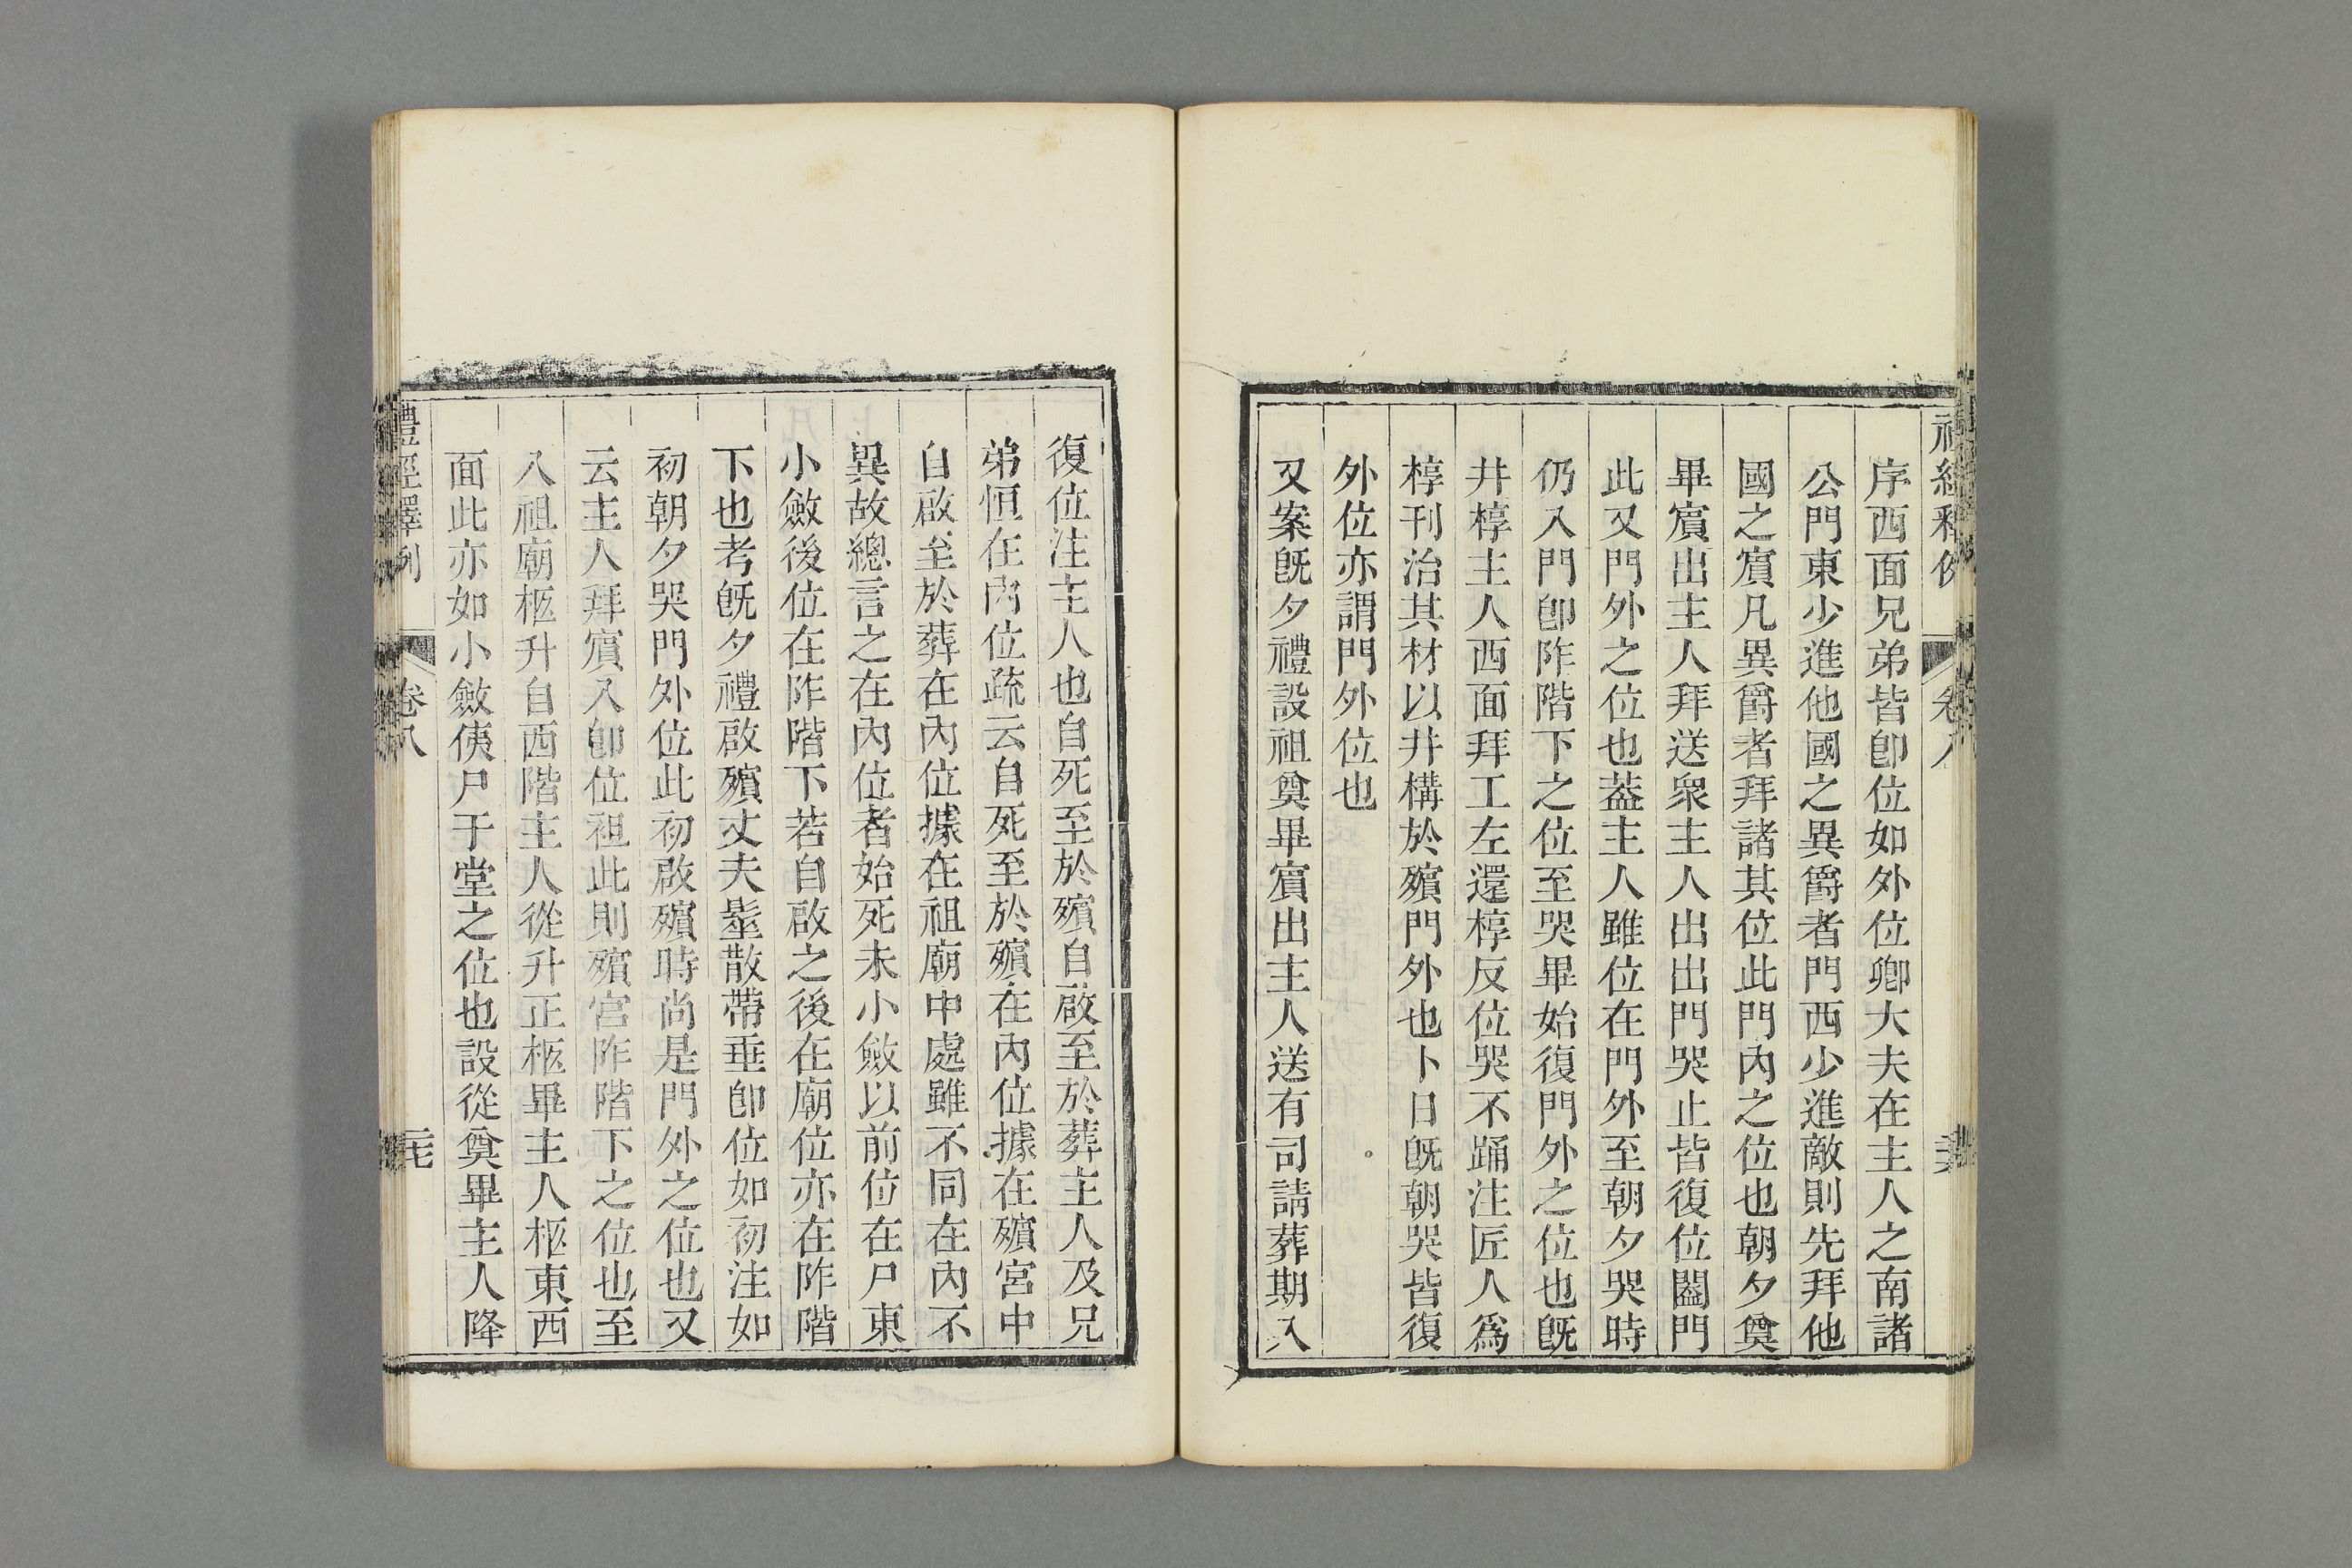 序西面兄弟皆卽位如外位卿大夫在主人之南諸
公門東少進他國之異爵者門西少進敵則先拜他
國之賔凡異爵者拜諸其位此門內之位也朝夕奠
畢賔出主人拜送衆主人出出門哭止皆復位闔門
此又門外之位也蓋主人雖位在門外至朝夕哭時
仍入門卽阼階下之位至哭畢始復門外之位也旣
井椁主人西面拜工左還椁反位哭不踊注匠人爲
椁刊治其材以井構於殯門外也卜日旣朝哭皆復
外位亦謂門外位也
又案旣夕禮設祖奠畢賔出主人送有司請葬期入
復位注主人也自死至於殯自啟至於葬主人及兄
弟恒在內位疏云自死至於殯在內位據在殯宮中
自啟至於葬在內位據在祖廟中處雖不同在內不
異故總言之在內位者始死未小斂以前位在尸東
小斂後位在阼階下若自啟之後在廟位亦在阼階
下也考旣夕禮啟殯丈夫髽散帶垂卽位如初注如
初朝夕哭門外位此初啟殯時尚是門外之位也又
云主人拜賔入卽位袒此則殯宮阼階下之位也至
入祖廟柩升自西階主人從升正柩畢主人柩東西
面此亦如小斂侇尸于堂之位也設從奠畢主人降
禮經釋例
卷八